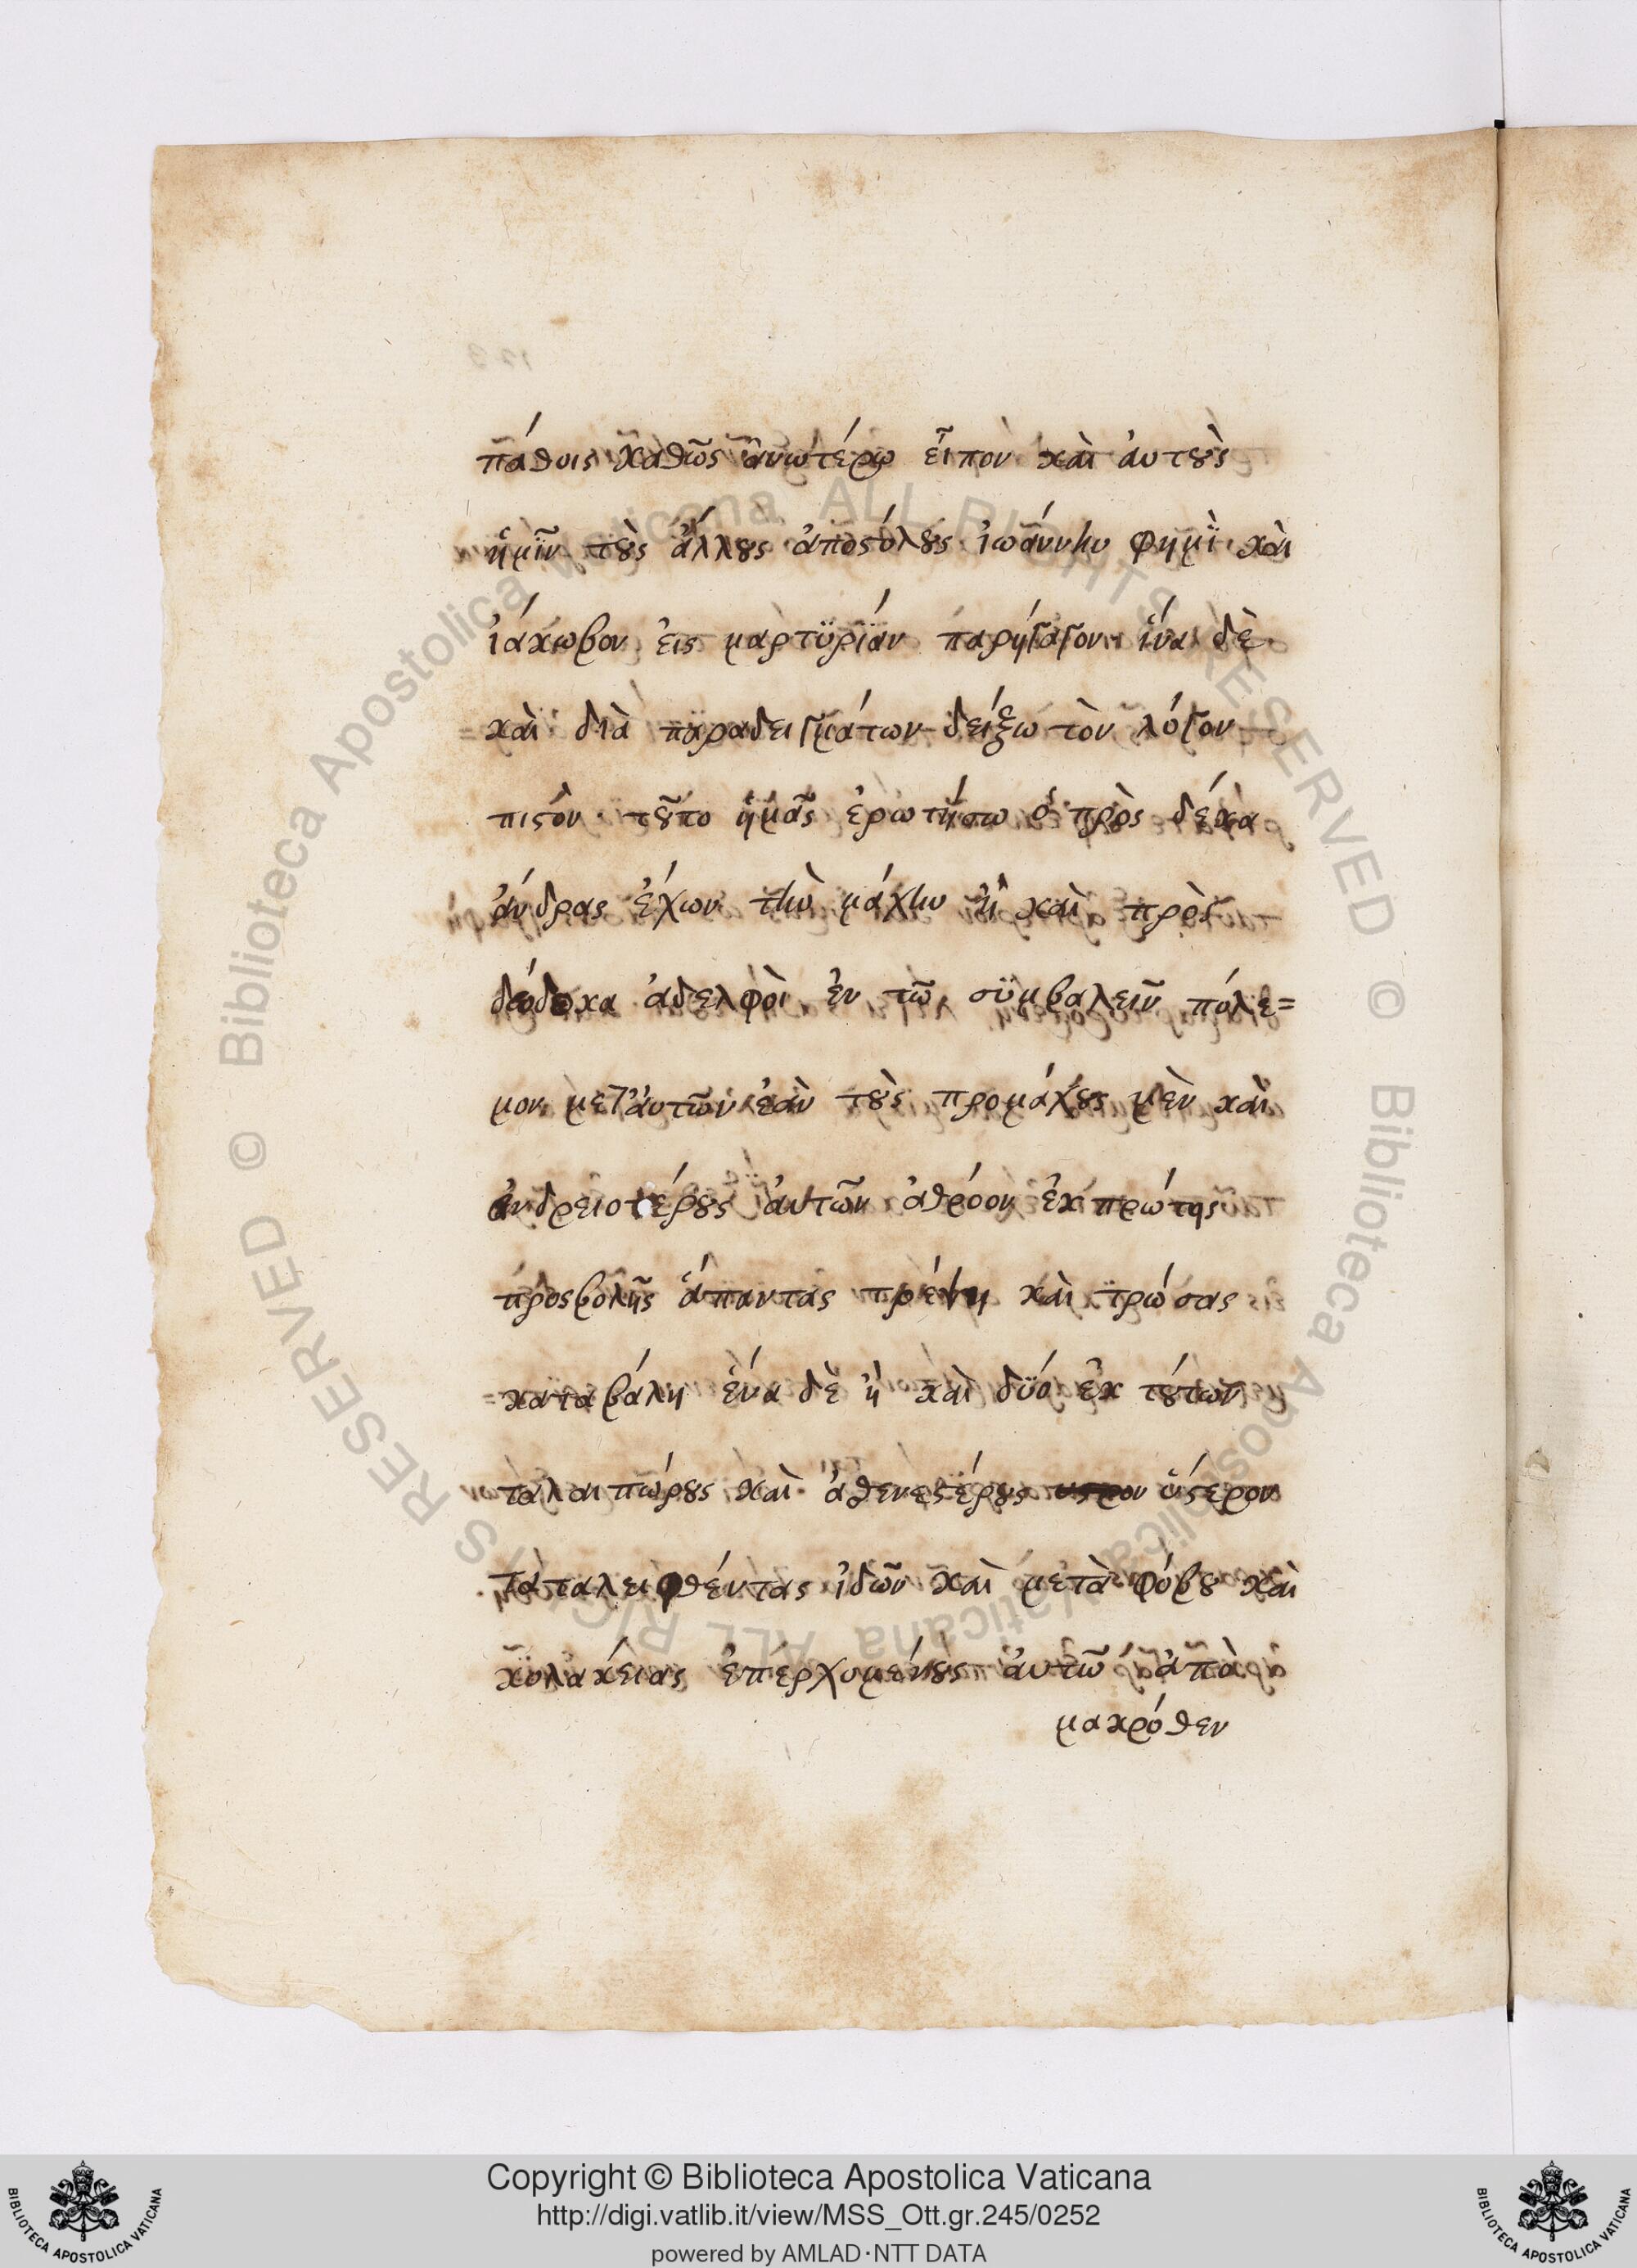 πάθοις καθῶς ἀνωτέρω εἶπον καὶ ἀυτοὺς
ἡμῖν τοὺς ἄλλους ἀποστόλους ἰωάννην φημὶ καὶ
ἰάκωβον ἐις μαρτϋρίαν παρήγαγον ἵνα δὲ
καὶ διὰ παραδειγμάτων δείξω τὸν λόγον
πιστὸν τοῦτο ἡμᾶς ἐρωτήσω ὁ πρὸς δέκα
ἄνδρας ἔχων τὴν μάχην ἢ καὶ πρὸς
δώδεκα ἀδελφοὶ ἐν τῶ σϋμβαλειν πόλε=
μον μετ' ἀυτῶν ἐὰν τοὺς προμάχους μὲν καὶ
ἀνδρειοτέρους ἀυτῶν ἀθρόον ἐκ πρώτης
προσβολῆς ἅπαντας τρέψη καὶ τρώσας
καταβάλη ἕνα δὲ ἢ καὶ δϋό ἐκ τούτων
ταλαιπώρους καὶ ἀθενεστέρους ὕστερον
ταταλειφθέντας ἰδῶν καὶ μετὰ φόβου καὶ
κολακέιας ἐπερχομένους ἀυτῶ ἀπὸ
μακρόθεν
Copyright © Biblioteca Apostolica Vaticana
http://digi.vatlib.it/view/MSS_Ott.gr.245/0252
powered by AMLAD·NTT DATA
BIBLIOTECA APOSTOLICA VATICANA
BIBLIOTECA APOSTOLICA VATICANA
© Biblioteca Apostolica Vaticana ALL RIGHTS RESERVED
© Biblioteca Apostolica Vaticana ALL RIGHTS RESERVED